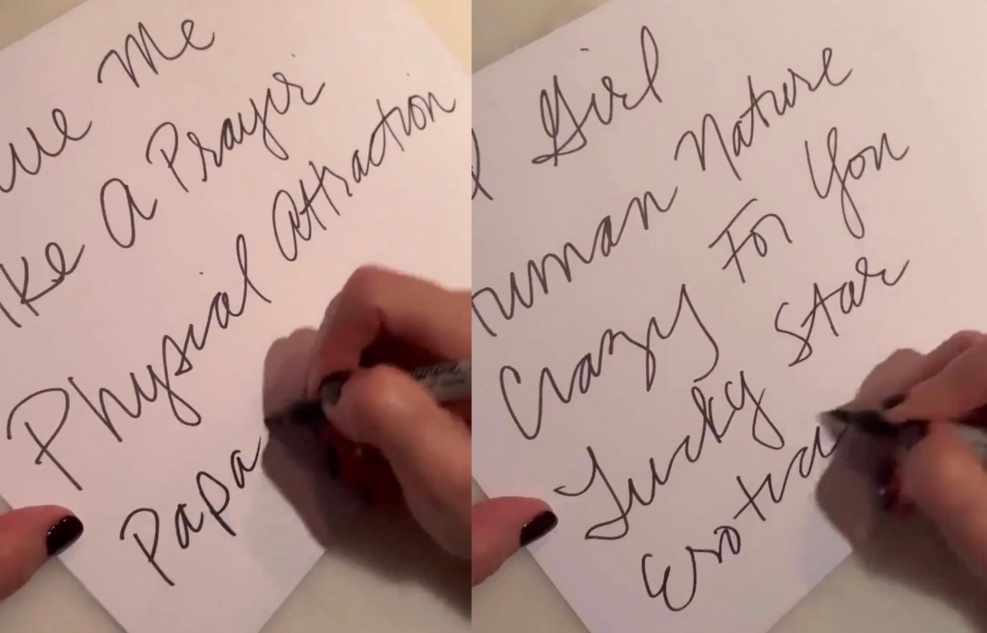 Me
A Prayer
Physical Attraction
Papa
Girl
Human Nature
Crazy For You
Lucky Star
Erotica